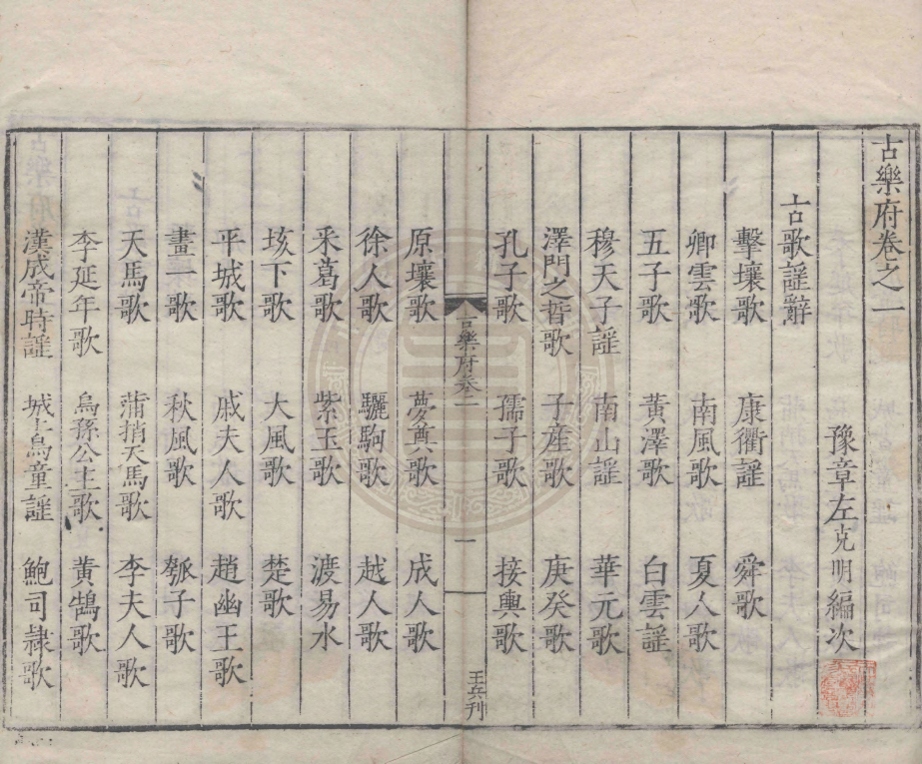 古樂府卷之一
豫章左克明編次
古歌謡辭
擊壤歌 康衢謡 舜歌
卿雲歌 南風歌 夏人歌
五子歌 黃澤歌 白雲謡
穆天子謡 南山謡 華元歌
澤門之晳歌 子產歌 庚癸歌
孔子歌 孺子歌 接輿歌
古樂府卷一
一
王兵刋
原壤歌 夢奠歌 成人歌
徐人歌 驪駒歌 越人歌
采葛歌 紫玉歌 渡易水
垓下歌 大風歌 楚歌
平城歌 戚夫人歌 趙幽王歌
畫一歌 秋風歌 瓠子歌
天馬歌 蒲捎天馬歌 李夫人歌
李延年歌 烏孫公主歌 黃鵠歌
漢成帝時謡 城上烏童謡 鮑司隸歌